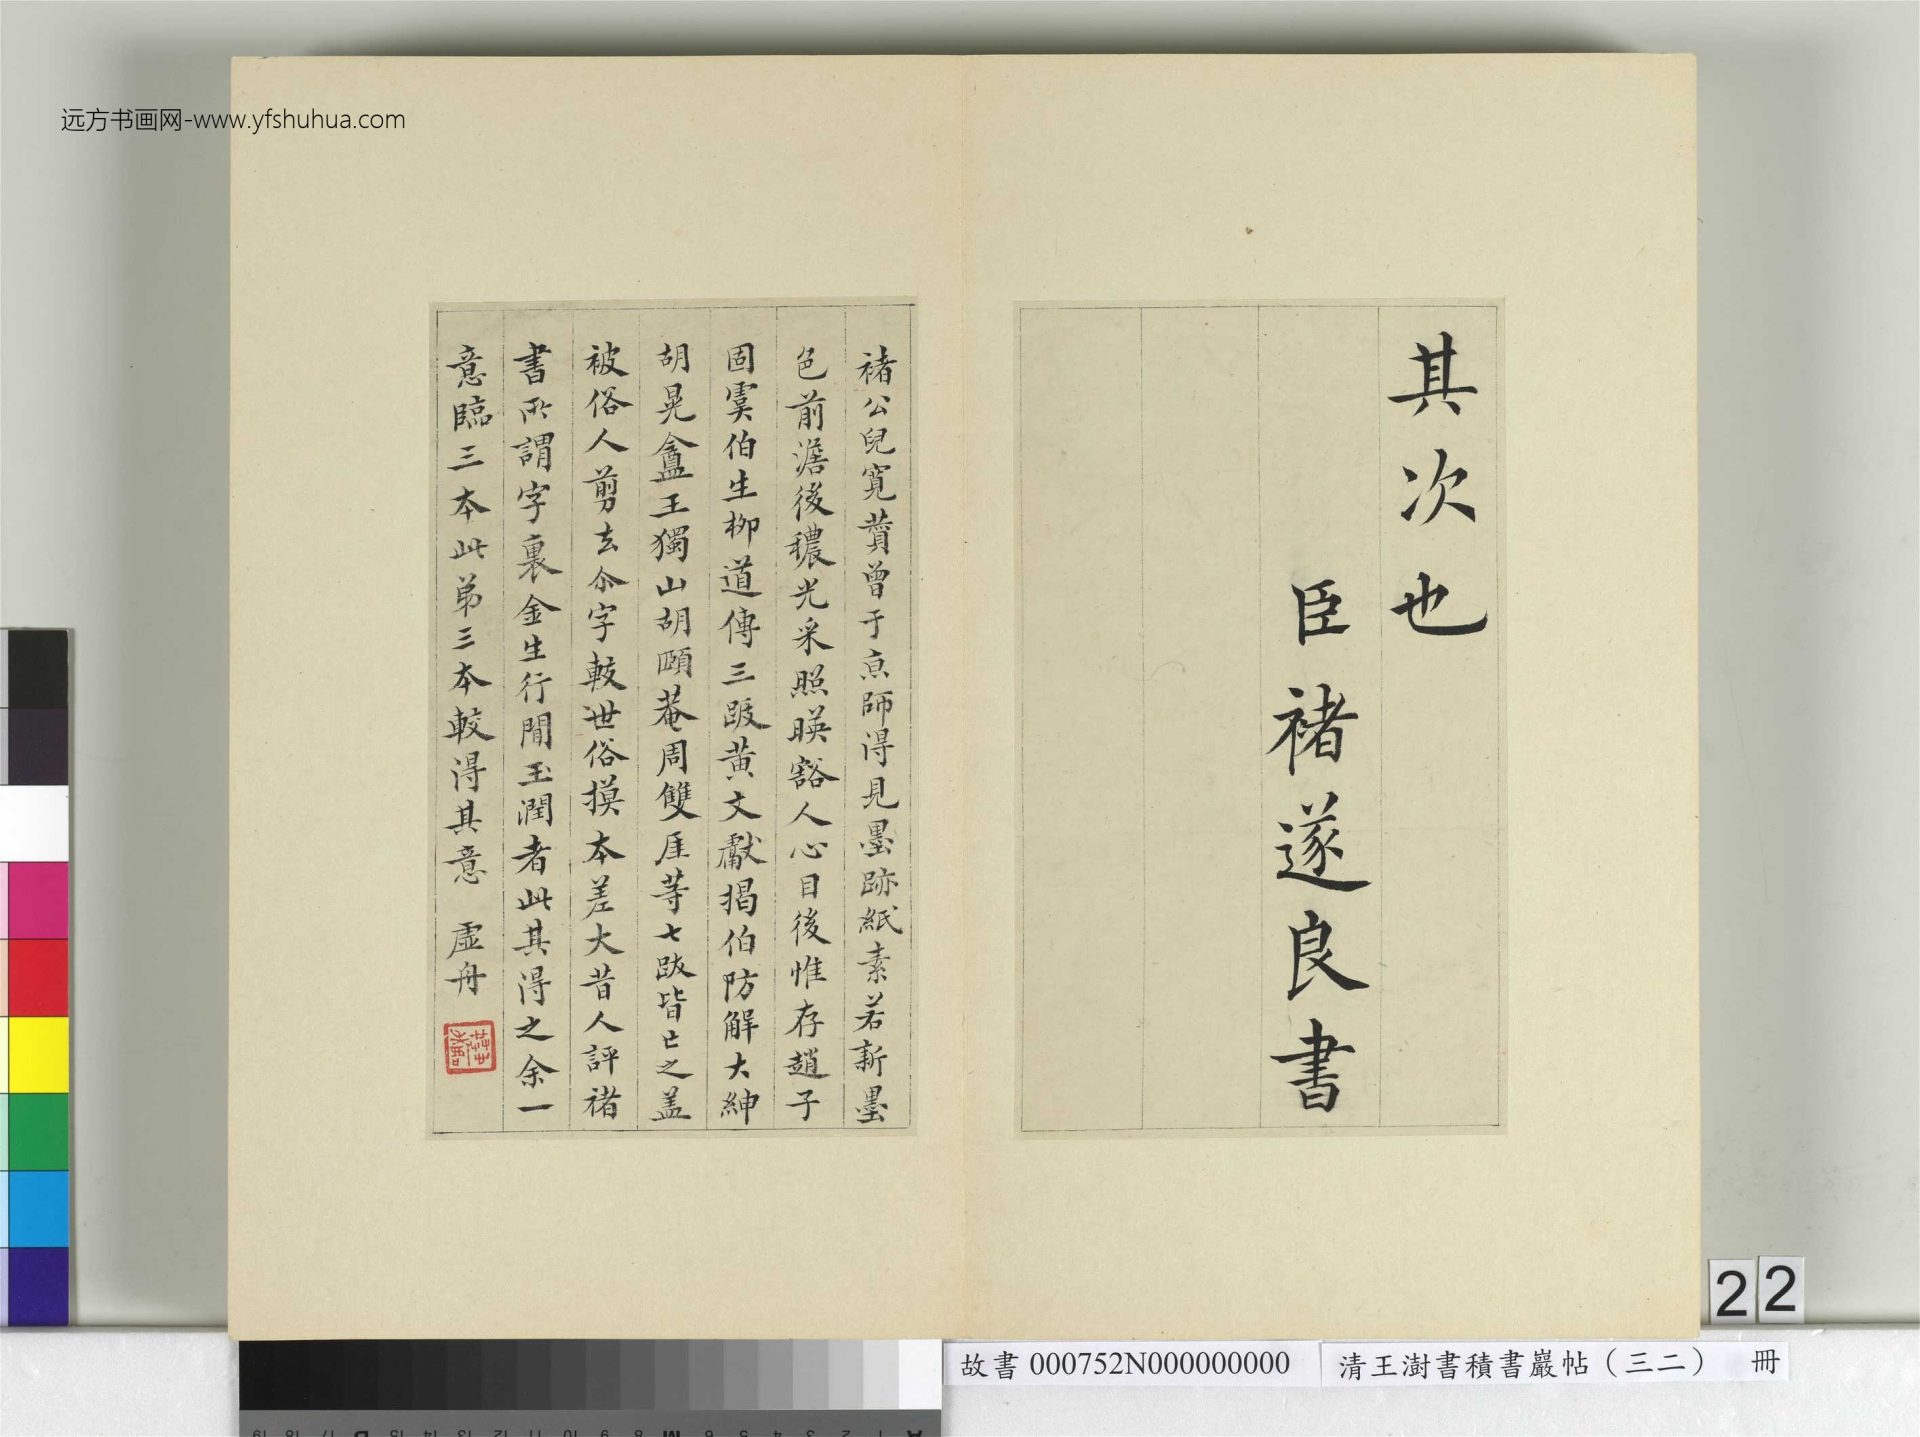 远方书画网-www.yfshuhua.com
其次也
臣褚遂良書
褚公兒寛贊曾于京師得見墨跡紙素若新墨
色前澹後穠光采照暎豁人心目後惟存趙子
固虞伯生柳道傳三跋黄文獻揭伯防解大紳
胡晃盦王獨山胡頤菴周雙厓等七跋皆亡之盖
被俗人剪去尒字較世俗摸本差大昔人評褚
書所謂字裏金生行閒玉潤者此其得之余一
意臨三本此弟三本較得其意 虛舟
22
故書 000752N000000000
清王澍書積書巖帖（三二） 冊